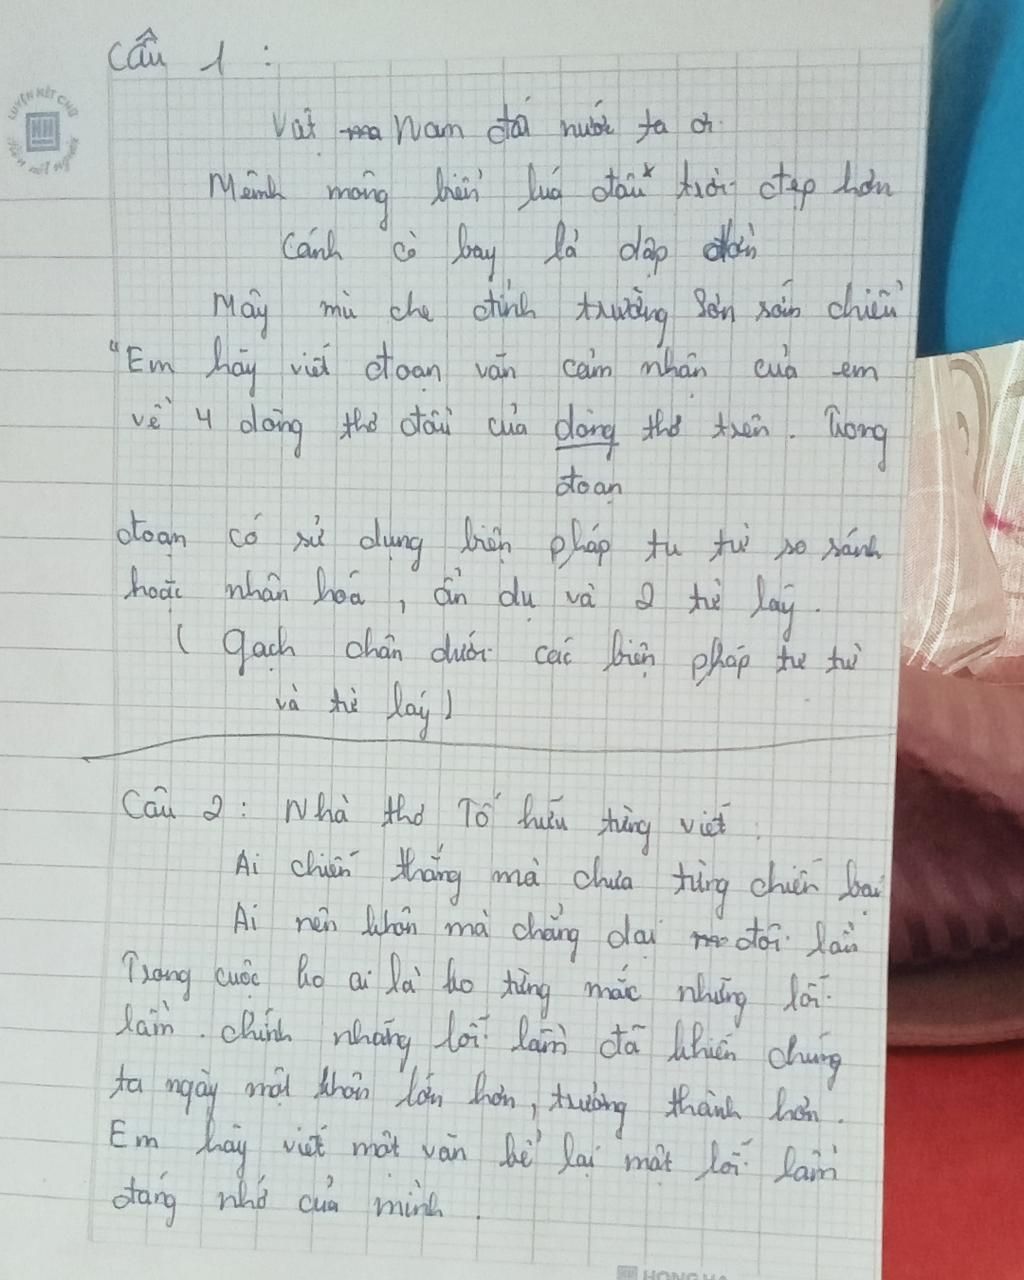 Câu 1 :
Việt Nam đất nước ta ơi
Mênh mông biển luá đâu trời đẹp hơn
Cánh cò bay lả dập dờn
Mây mù che đỉnh trường Sơn sớm chiều
"Em hãy viết đoạn văn cảm nhận của em
về 4 dòng thơ đầu của dòng thơ trên. Trong
đoạn
đoạn có sử dụng biện pháp tu từ so sánh
hoặc nhân hoá, ẩn dụ và 2 từ láy.
( gạch chân dưới các biện pháp tư từ
và từ láy)
Câu 2: Nhà thơ Tố hữu từng viết:
Ai chiến thắng mà chưa từng chiến bại
Ai nên khôn mà chẳng dại đôi lần
Trong cuộc ai là từng mắc những lỗi
lầm. chính những lỗi lầm đã khiến chúng
ta ngày một khôn lớn hơn, trưởng thành hơn.
Em hãy viết một văn kể lại một lỗi lầm
đáng nhớ của mình.
HONG HA